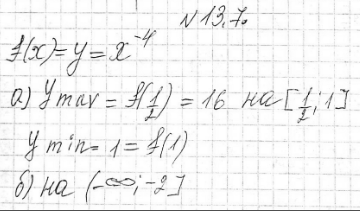 №13.7.
f(x)=y=x⁻⁴
а) y max = f(1/2) = 16 на [1/2; 1]
y min = 1 = f(1)
б) на (-∞; -2]